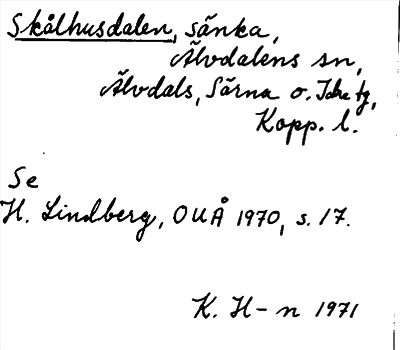 Skålhusdalen, sänka,
Älvdalens sn,
Älvdals, Särna o. Idre tg,
Kopp. l.
Se
H. Lindberg, OUÅ 1970, s. 17.
K. H-n 1971